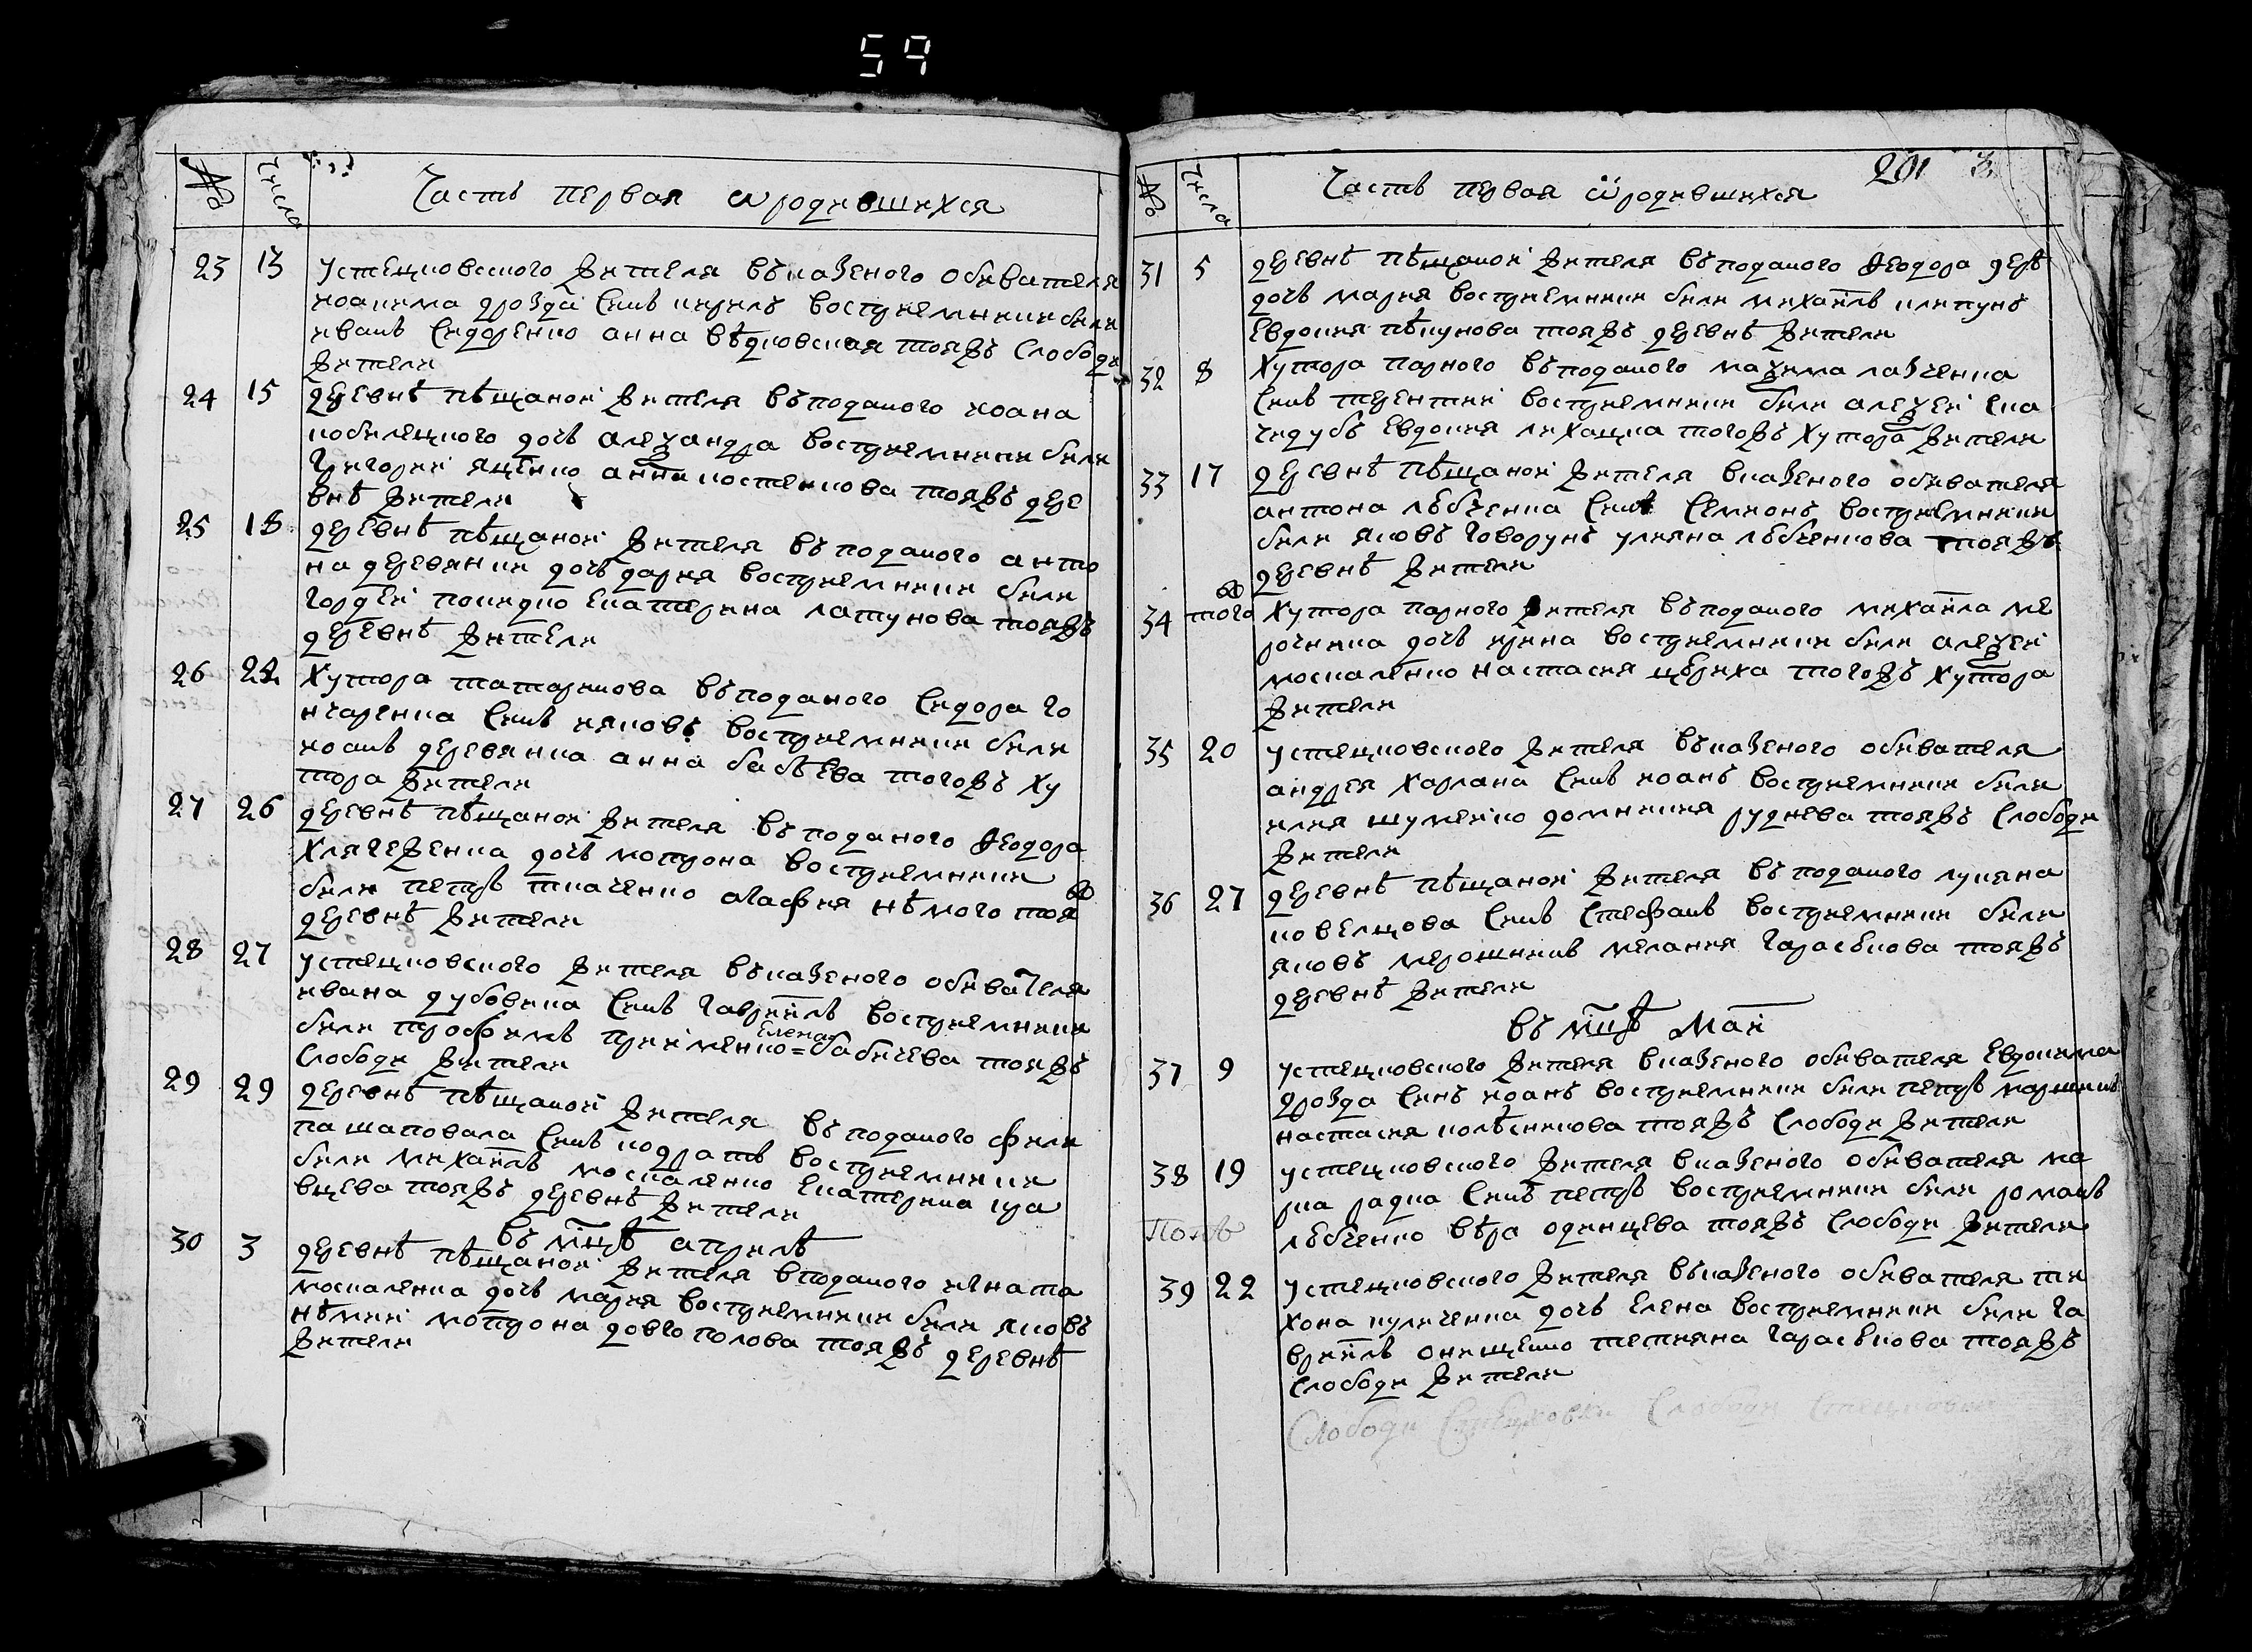 59
№ Числа Часть первая ѡ родившихся
23 13 устецковского жителя въ казеного обивателя
иоакима дрозда синъ кирилъ восприемники били
иванъ сидоренко анна вѣдковская тояжъ слободи
жители
24 15 деревнѣ пѣщаной жителя въ поданого иоана
кобилецкого дочь алеѯандра восприемники били
григорий яценко анна костенкова тояжъ дере
внѣ жители
25 18 деревнѣ пѣщаной жителя въ поданого анто
на деревянки дочь дария восприемники били
гордей покидко екатерина латунова тояжъ
деревнѣ жители
26 22 Хутора татаринова въ поданого сидора го
нчаренка синъ ияковъ восприемники били
иоанъ деревянка анна бабѣева тогожъ ху
тора жители
27 26 деревнѣ пѣщаной жителя въ поданого феодора
хлячеженка дочь мотрона восприемники
били петръ ткаченко агафия нѣмого тояжъ
деревнѣ жители
28 27 устецковского жителя въ казеного обивателя
ивана дубовика синъ гавриилъ восприемники
били трофимъ прийменко= елена бабичева тояжъ
слободи жители
29 29 деревнѣ пѣщаной жителя въ поданого фили
па шаповала синъ кодратъ восприемники
били михаилъ москаленко екатерина кра
вцева тояжъ деревнѣ жители
въ мцѣ априлѣ
30 3 деревнѣ пѣщаной жителя в поданого игната
москаленка дочь мария восприемники били яковъ
нѣмий мотрона довгополова тояжъ деревнѣ
жители
201
№ Числа Часть первая ѡ родившихся
31 5 деревнѣ пѣщаной жителя въ поданого феодора
дочь мария восприемники били михаилъ клипунъ
евдокия пѣкунова тояжъ деревнѣ жители
32 8 Хутора парного въ поданого маѯима лазченка
синъ терентий восприемники били алеѯей ска
чидубъ евдокия лихацка тогожъ хутора жители
33 17 деревнѣ пѣщаной жителя в казеного обивателя
антона лѣбченка синъ семионъ восприемники
били яковъ говорунъ улияна лѣбченкова тояжъ
деревнѣ жители
34 тогож Хутора парного жителя въ поданого михаила ме
рочника дочь ирина восприемники били алеѯей
москаленко настасия цѣриха тогожъ хутора
жители
35 20 устецковского жителя въ казеного обивателя
андрея харлана синъ иоанъ восприемники били
илия шуменко домникия руднева тояжъ слободи
жители
36 27 деревнѣ пѣщаной жителя въ поданого лукиана
ковелцова синъ стефанъ восприемники били
яковъ мерошникъ мелания гарасѣкова тояжъ
деревнѣ жители
въ мцѣ маи
37 9 устецковского жителя в казеного обивателя евдокима
дрозда синъ иоанъ восприемники били петръ
настасия колѣсникова тояжъ слободи жители
38 19 устецковского жителя в казеного обивателя ма
рка радка синъ петръ восприемники били романъ
лѣбченко вѣра одинцева тояжъ слободи жители
39 22 устецковского жителя въ казеного обивателя ти
хона куличенка дочь елена восприемники били га
вриилъ онищенко тетияна гарасѣкова тояжъ
слободи жители
Слободи Слободи